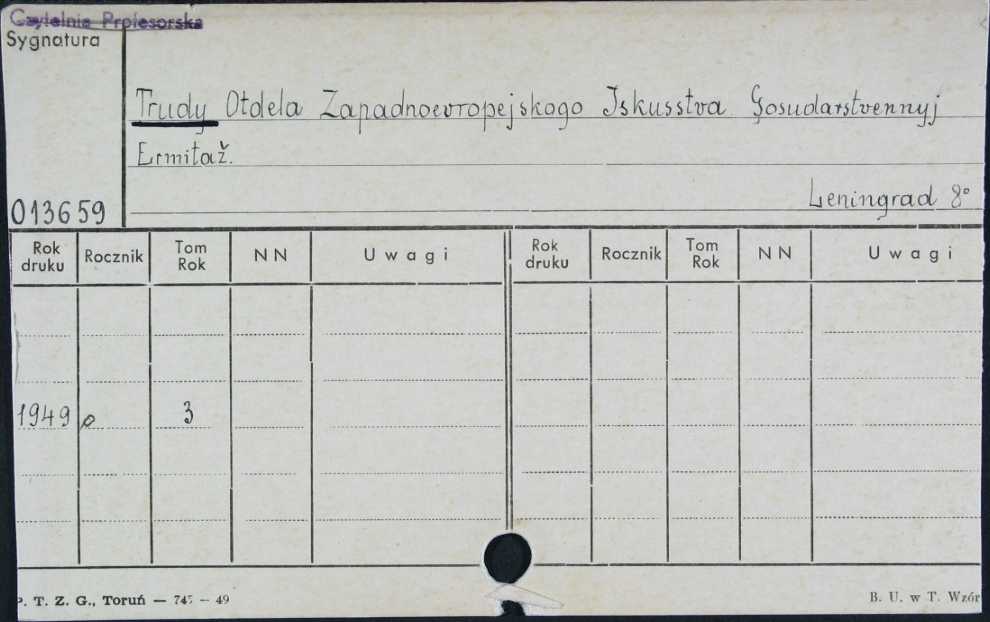 Czytelnia Profesorska
Sygnatura
Trudy Otdela Zapadnoevropejskogo Iskusstva Gosudarstvennyj
Ermitaž.
Leningrad 8°
013659
Rok druku Rocznik Tom Rok NN Uwagi Rok druku Rocznik Tom Rok NN Uwagi
1949 3
P. T. Z. G., Toruń — 745 – 49
B. U. w T. Wzór